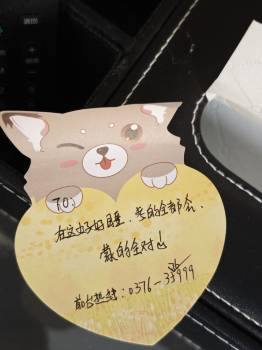 TO:
在这好好睡,考的全都会,
蒙的全对
前台热线:0376-3~~3~~999